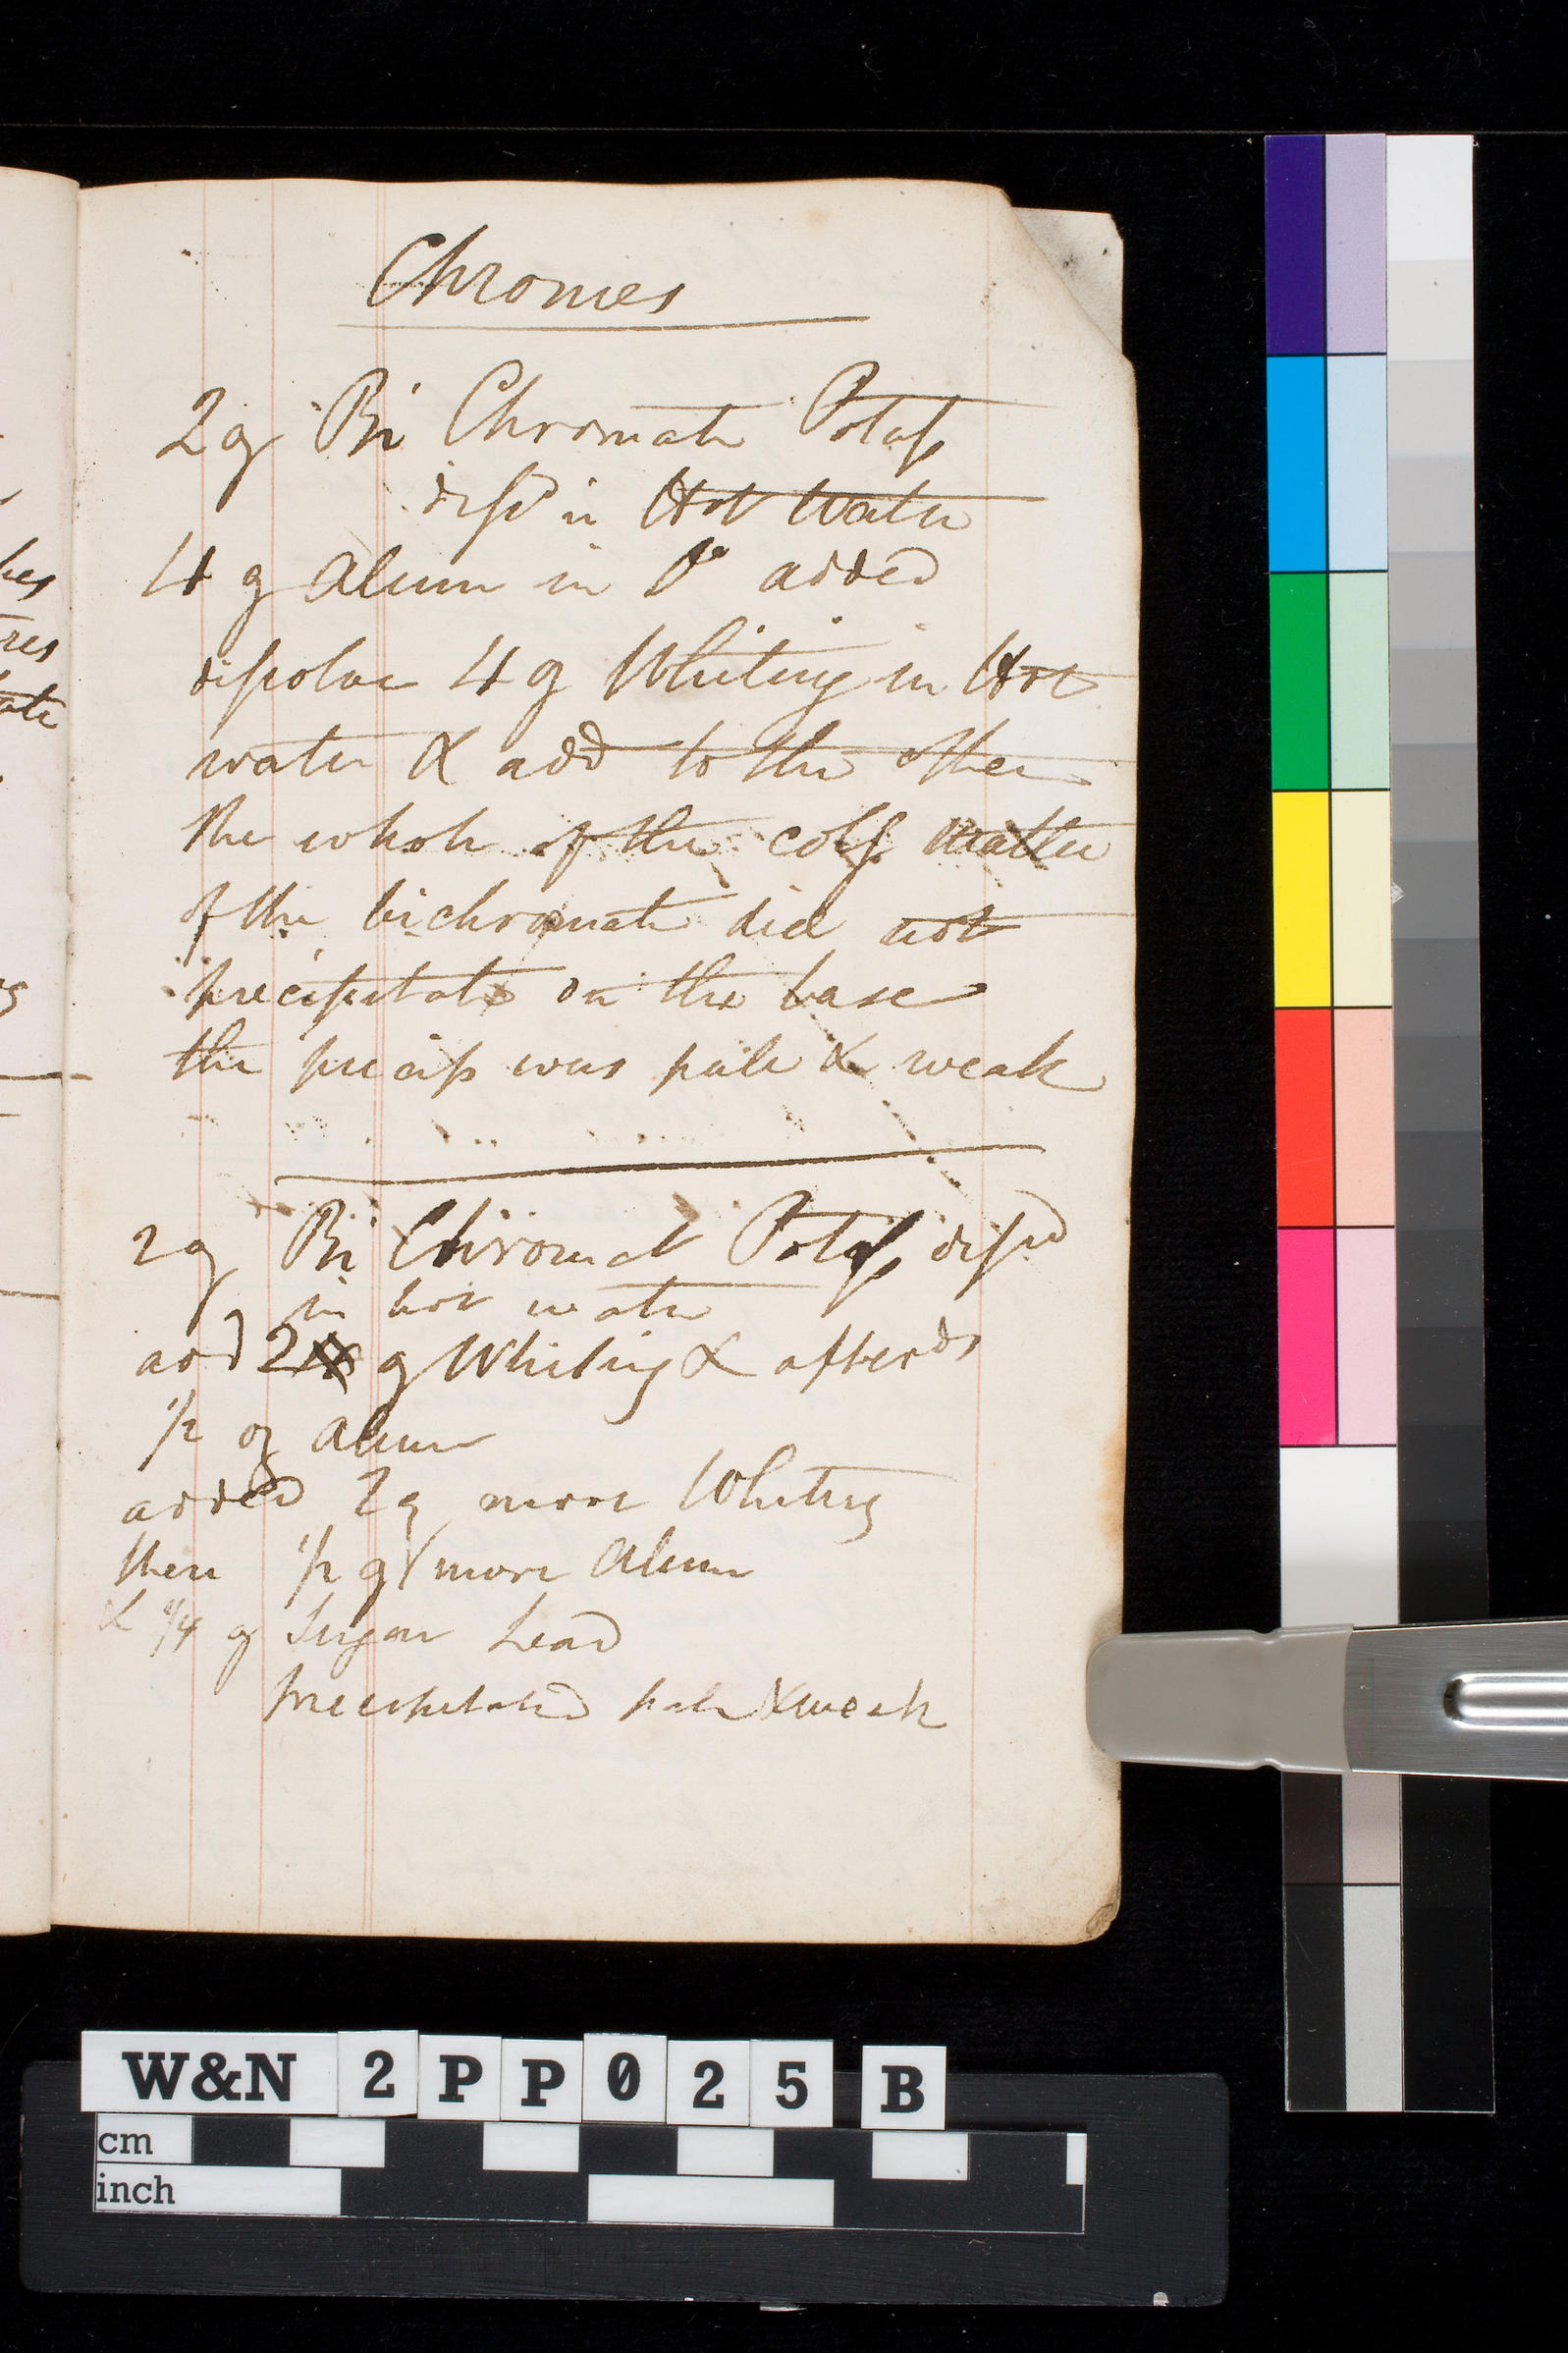 Chromes
2 oz Bi Chromate Potass
dissd in Hot Water
4 oz Alum in Do added
dissolve 4 oz Whiting in Hot
water & add to the other
the whole of the colg matter
of the bichromate did not
precipitate on the base
the precip was pale & weak
2 oz Bi Chromat Potass dissd
in hot water
add 2 oz Whiting & afterds
1/2 oz Alum
added 2 oz more Whiting
then 1/2 oz more Alum
& 1/4 oz Sugar Lead
precipitated pale & weak
hes
res
ate
W&N 2PP025 B
cm
inch